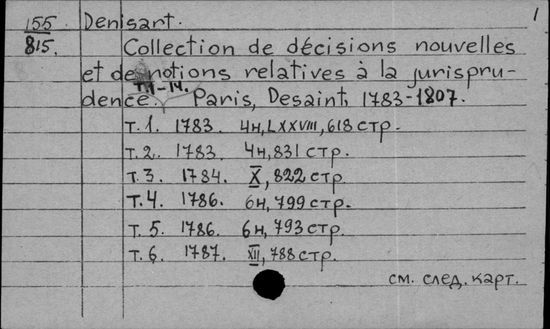 155 Denisart. 1
815. Collection de décisions nouvelles
et de notions relatives à la jurispru-
T. 1-14.
dence. Paris, Desaint, 1783-1807.
Т. 1. 1783. 4н, LXXVIII, 618 стр.
Т. 2. 1783. 4н, 831 стр.
Т. 3. 1784. X, 822 стр.
Т. 4. 1786. 6н, 799 стр.
Т. 5. 1786. 6н, 793 стр.
Т. 6. 1787. XII, 788 стр.
см. след. карт.